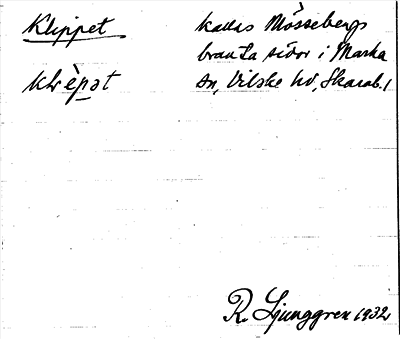 Klippet
kallas Mössebergs
branta sidor i Marka
klèpət
sn, Vilske hd, Skarab. l
R. Ljunggren 1932